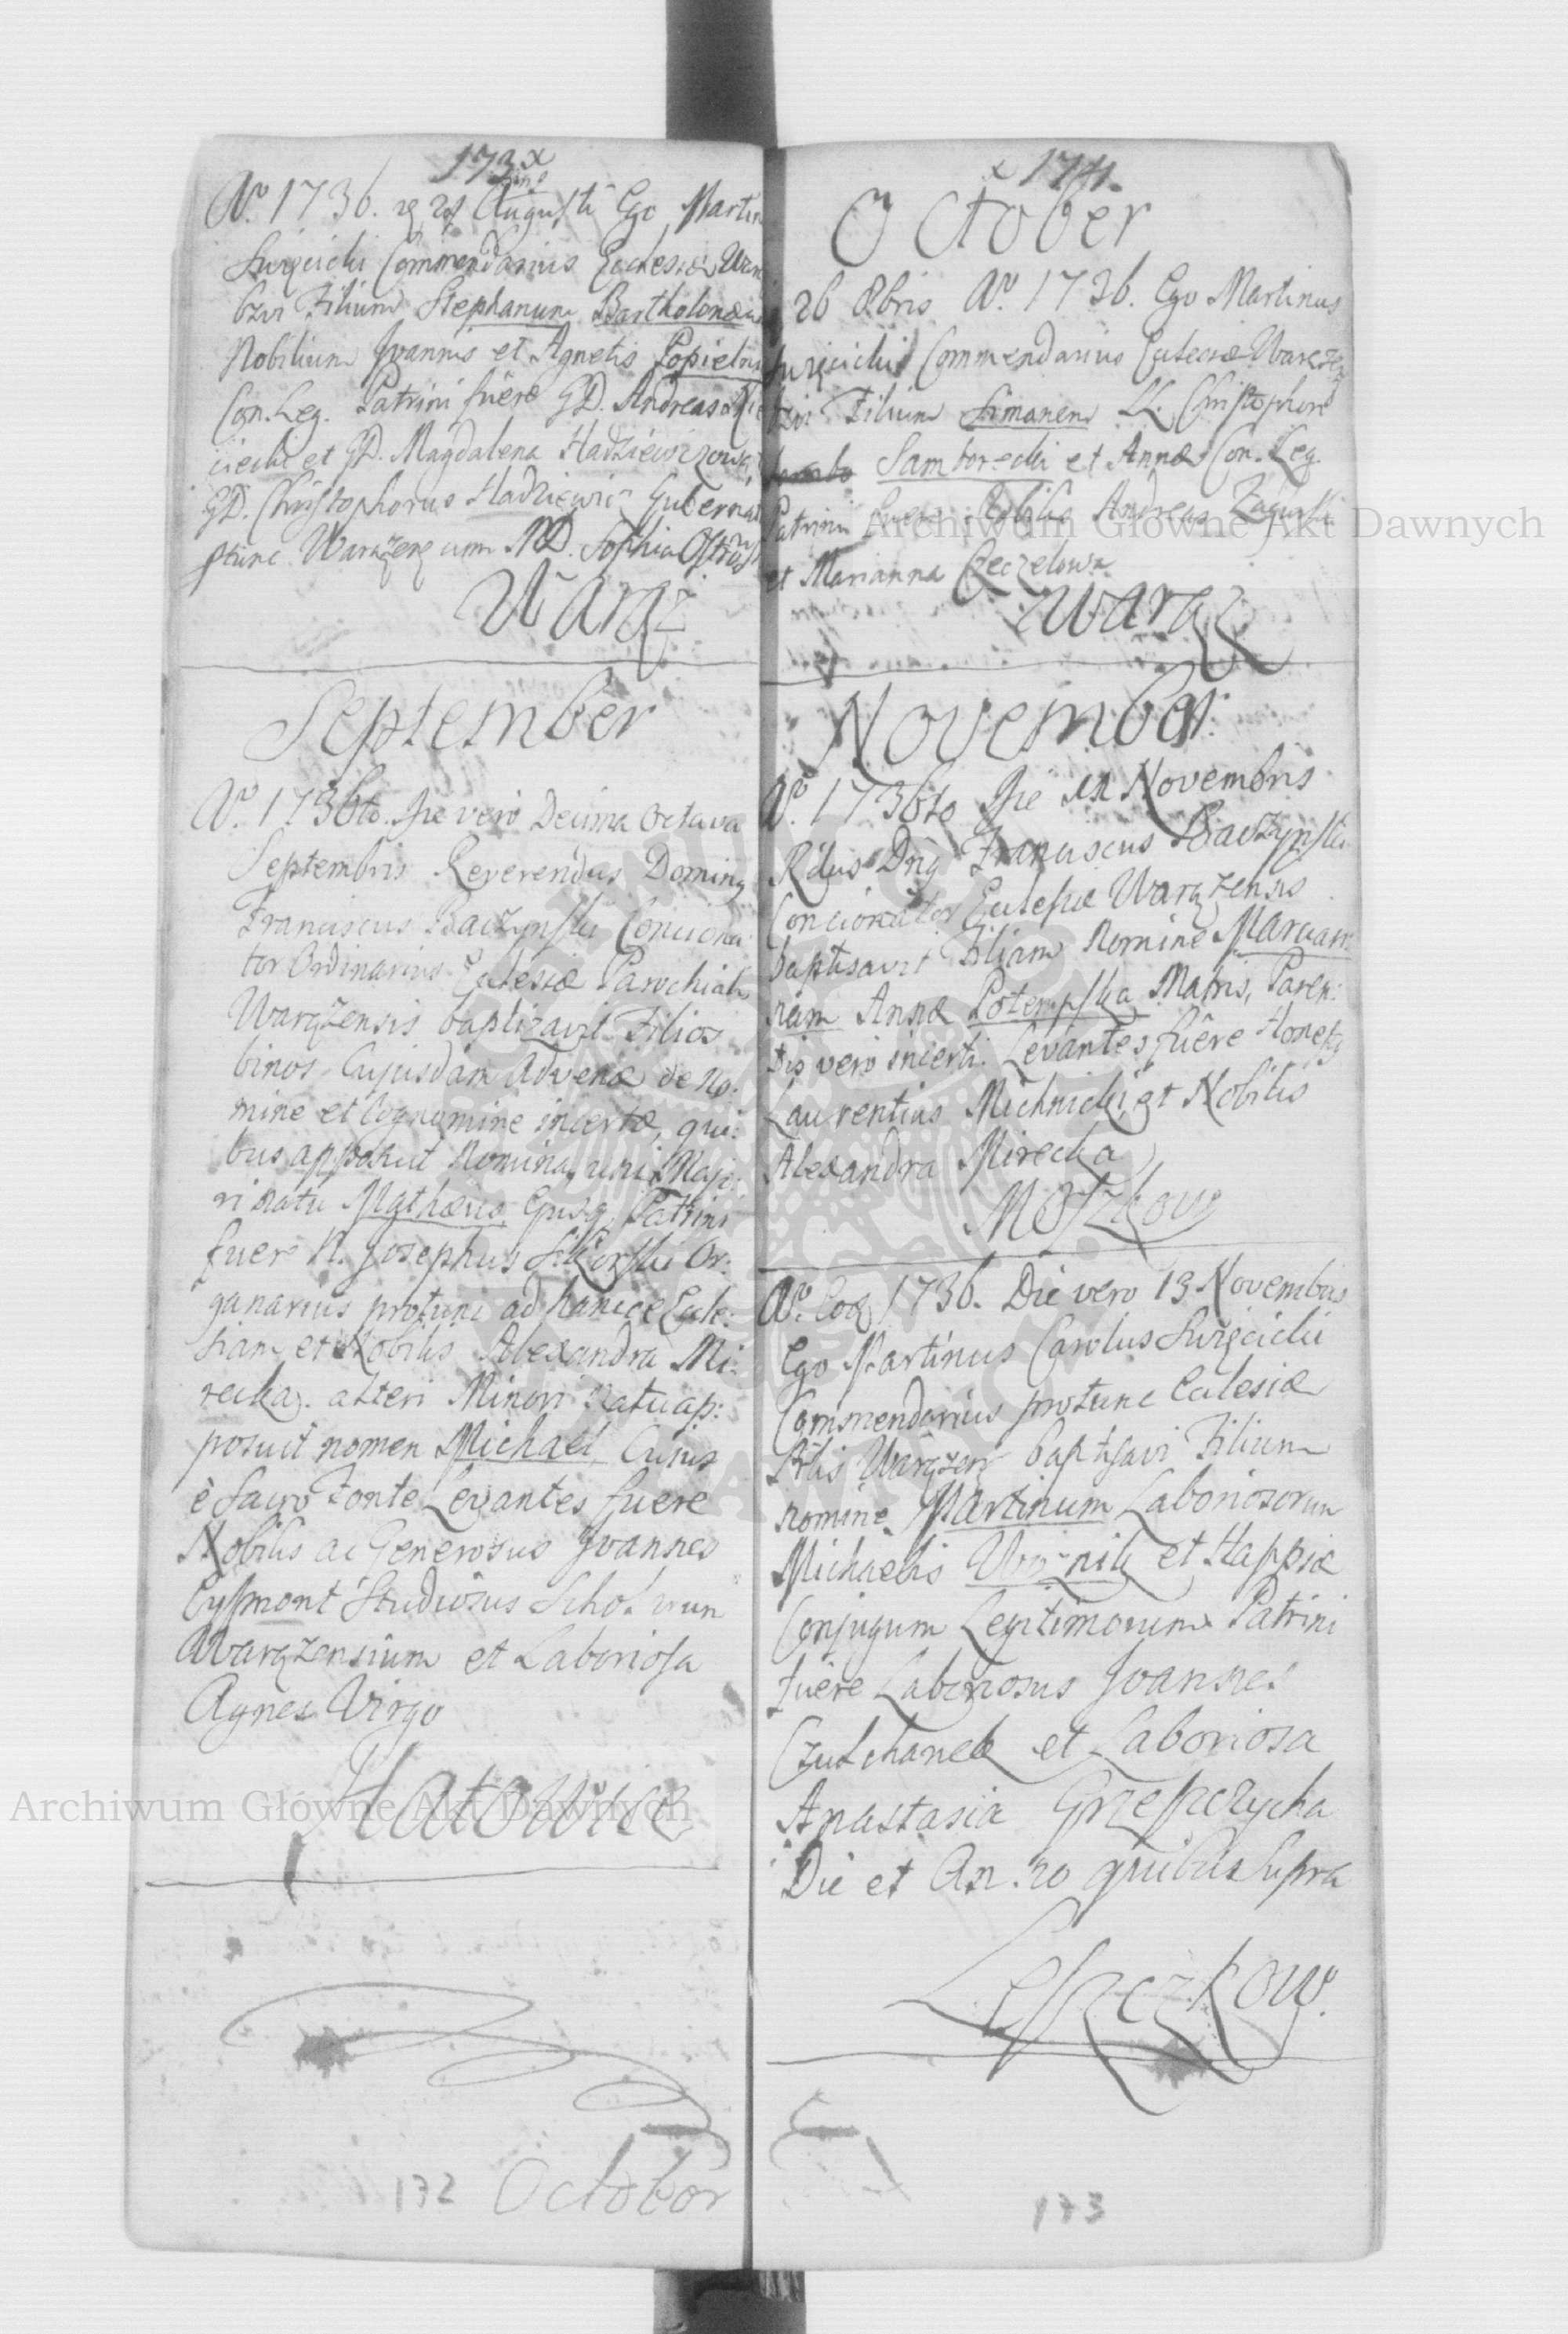 173
Ao. 1736. 29 Augusti Ego Martin
Swięcicki Commendarius Ecclesiæ War
bzvi Filium Stephanum Bartholomæum
Nobilium Joannis et Agnetis Popielow
Con. Leg. Patrini fuêre GD. Andreas
ciecki et GD. Magdalena Hadziewiczowa
GD. Christophorus Hadziewicz Gubernat
ptunc Warężen cum MD. Sophia Ostrows
Waręż
September
Ao. 1736to. Die vero Decima Octava
Septembris Reverendus Dominus
Franciscus Baczynski Conciona
tor Ordinarius Eclesiæ Parochialis
Warężensis baptizavit Filios
binos Cujusdam Advenæ de No:
mine et Cognomine incertæ, qui:
bus apposuit Nomina, uni Majo:
ri natu Mathæus, Ejusq; Patrini
fuere N. Josephus Sikorski Or:
ganarius protunc ad hancce Ecle:
siam et Nobilis Alexandra Mi:
recka. alteri Minori natu ap:
posuit nomen Michael, Cujus
è Sacro Fonte Levantes fuere
Nobilis ac Generosus Joannes
Eysmont Studiosus Scholarum
Warężensium et Laboriosa
Agnes Virgo
Hatowice
132 October
174.
October
26 8bris Ao. 1736. Ego Martinus
Swięcicki Commendarius Eclesiæ Warężen
bzvi Filium Simonem LL. Christophori
Sambo Samborecki et Annæ Con. Leg.
Patrini fuere Nobilis Andreas Zagurski
et Marianna Czeczelowa
Waręż
November.
Ao. 1736to Die Novembris
Rdus Dns Franciscus Baczynski
Concionator Eclesiæ Warężensis
baptisavit Filiam Nomine Marian
nam Annæ Potempska Matris, Paren:
tis vero incerti. Levantes fuêre Honestus
Laurentius Michnicki et Nobilis
Alexandra Mirecka
Moszkow
Ao. Eoq 1736. Die vero 13 Novembris
Ego Martinus Carolus Swięcicki
Commendarius protunc Eclesiæ
Plis Warężen baptisavi Filium
nomine Martinum Laboriosorum
Michaelis Woznik et Happiæ
Conjugum Legitimorum Patrini
fuêre Laboriosus Joannes
Czulchanek et Laboriosa
Anastasia Grzesczycha
Die et Anno quibus Supra
Leszczkow.
173
Archiwum Główne Akt Dawnych
Archiwum Główne Akt Dawnych